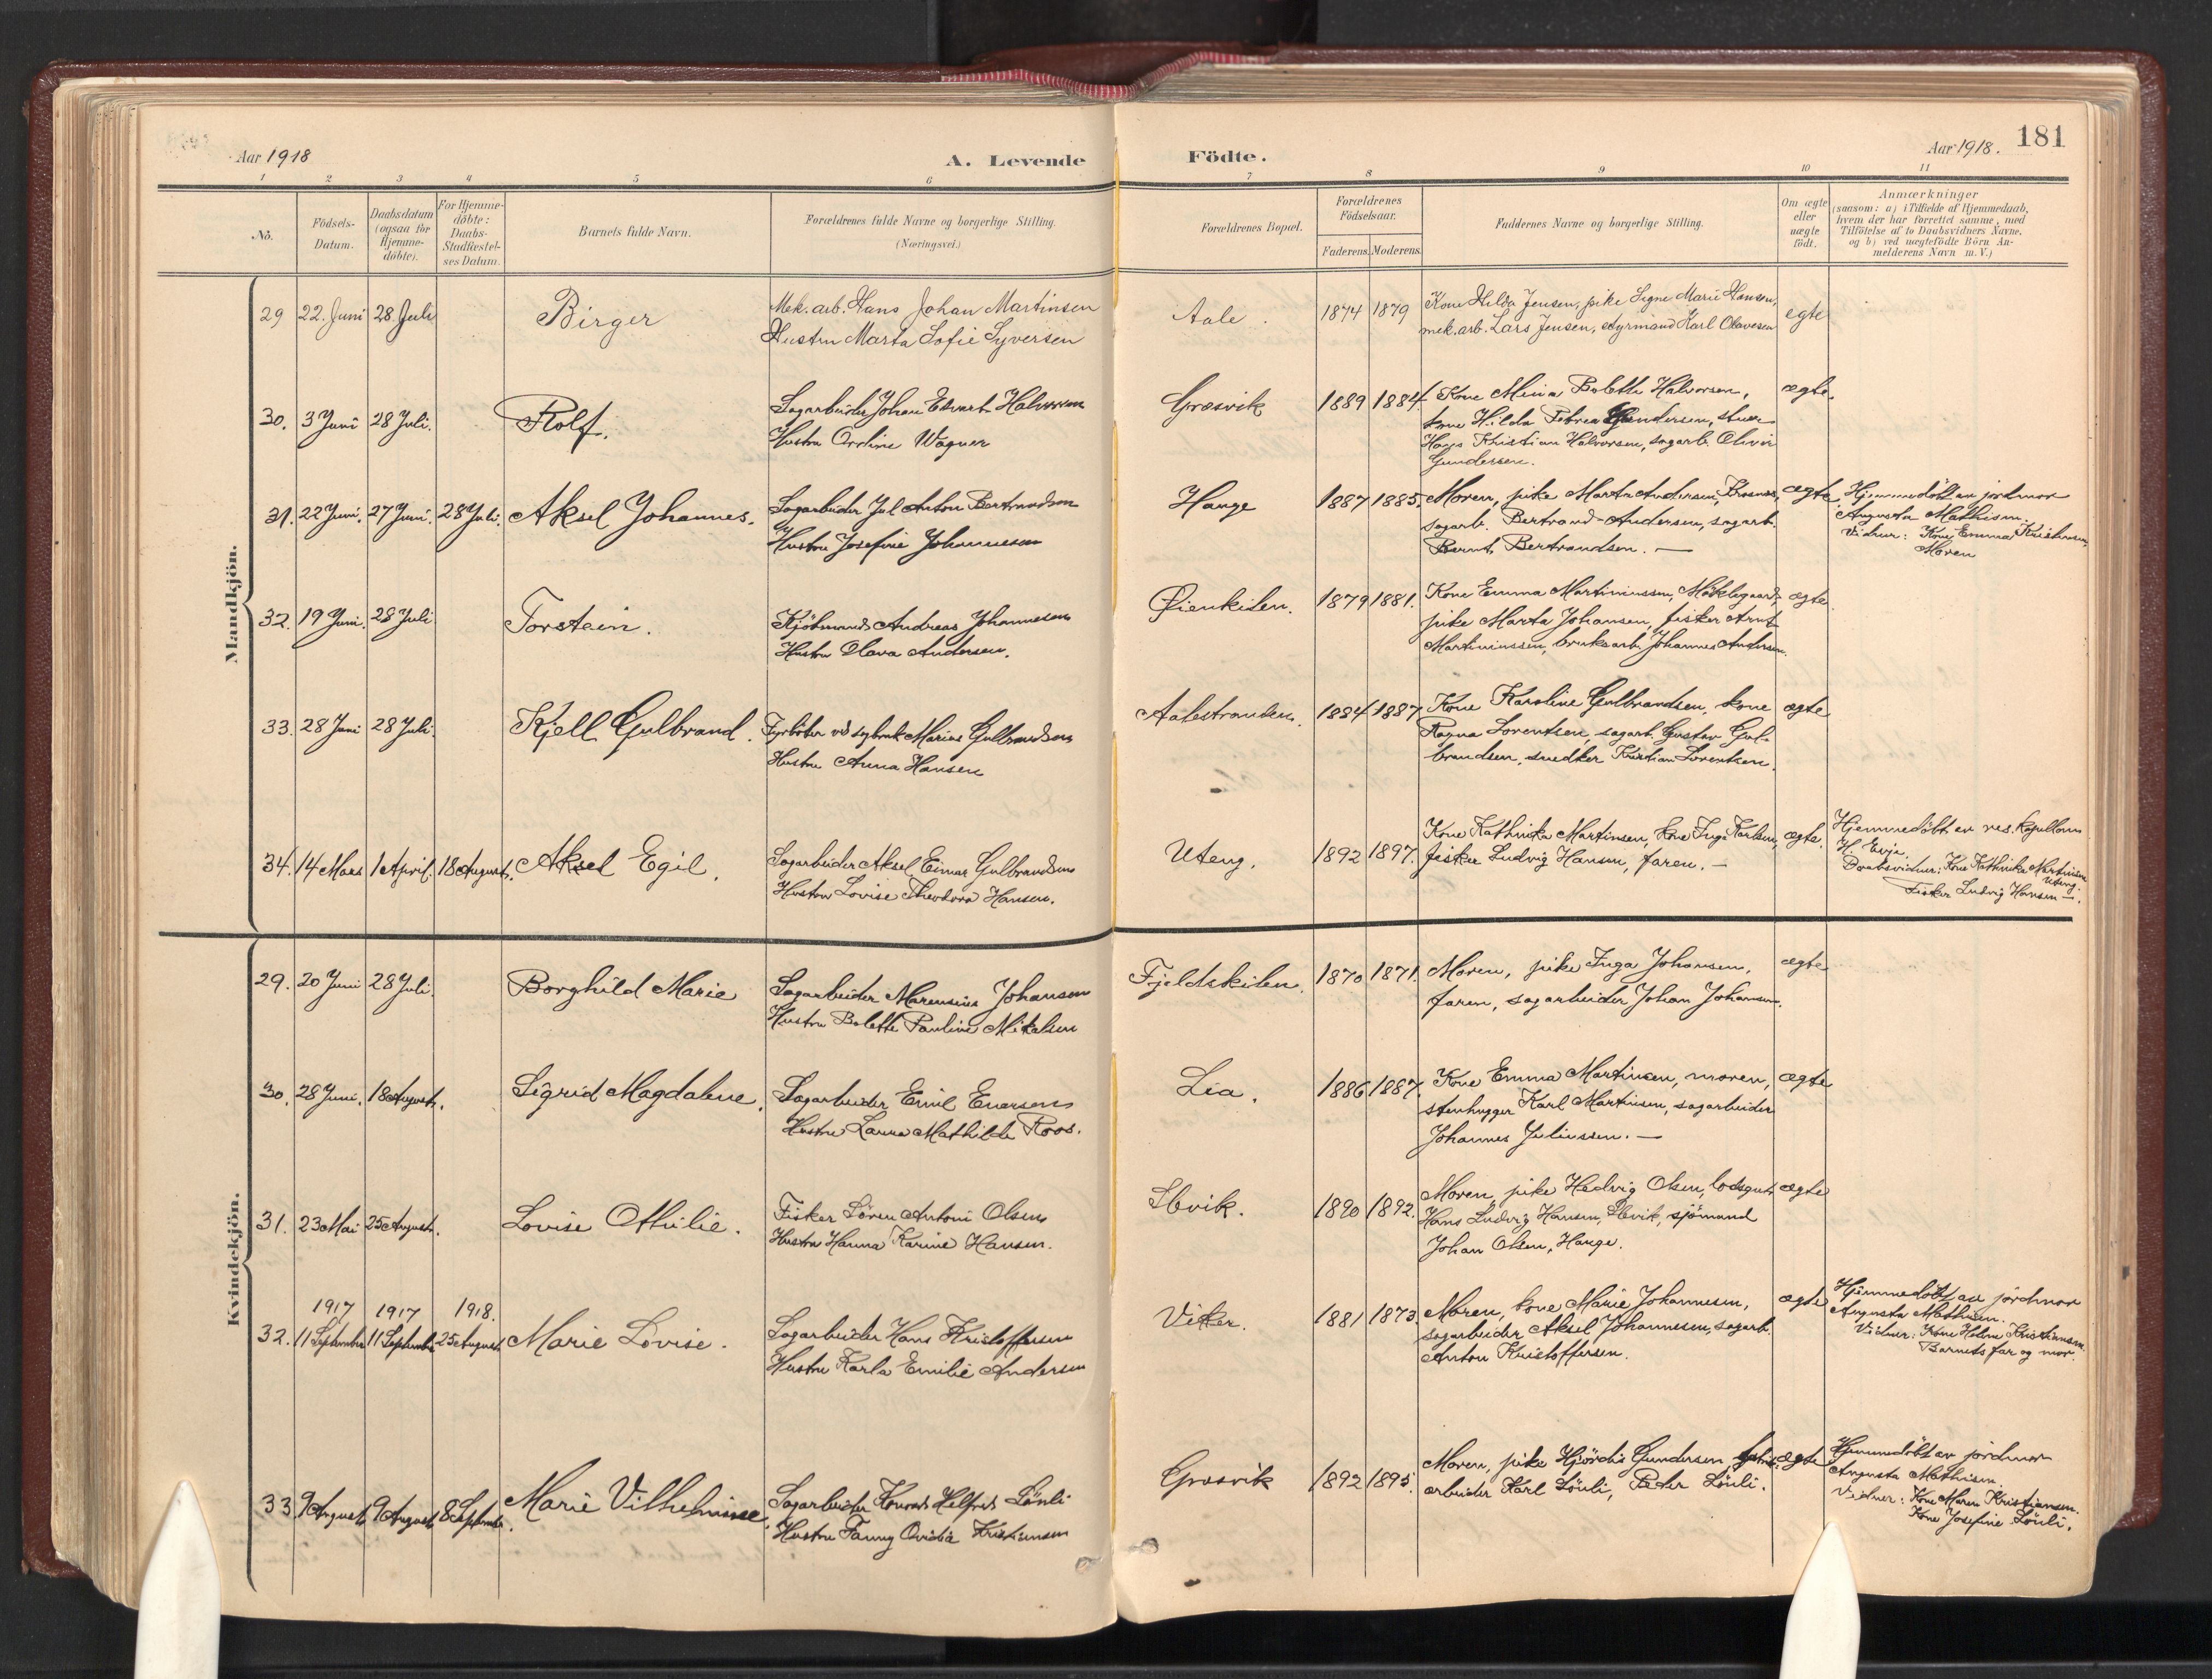 181
Aar 1918
A. Levende
Födte.
Aar 1918.
1 2 3 4 5 6 7 8 9 10 11
No.
Födsels-
Datum.
Daabsdatum
(ogsaa for
Hjemme-
döbte).
For Hjemme-
döbte:
Daabs-
Stadfæstel-
ses Datum.
Barnets fulde Navn.
Forældrenes fulde Navne og borgerlige Stilling.
(Næringsvei.)
Forældrenes Bopæl.
Forældrenes
Födselsaar.
Faderens. Moderens.
Faddernes Navne og borgerlige Stilling.
Om ægte
eller
uægte
födt.
Anmærkninger
(saasom: a) i Tilfælde af Hjemmedaab,
hvem der har forrettet samme, med
Tilföielse af to Daabsvidners Navne.
og b) ved uægtefödte Börn An-
melderens Navn m.V.)
Mandkjön.
29 22. Juni 28. Juli Birger
Mek. arb. Hans Johan Martinsen
Hustru Marta Sofie Syversen
Aale. 1874 1879
Kone Hilda Jensen, pike Signe Marie Hansen,
mek. arb. Lars Jensen, styrmand Karl Olavesen
egte
30. 3 Juni 28 Juli. Rolf.
Sagarbeider Johan Edvart Halvorsen
Hustru Ovidine Wagner
Græsvik 1889 1884.
Kone Mina Bolette Halvorsen,
kone Hilda Petrea Gundersen, stuer
Hans Kristian Halvorsen, sagarb. Oliver
Gundersen.
ægte.
31. 22 Juni. 27 Juni. 28 Juli. Aksel Johannes.
Sagarbeider Jul Anton Bertrandsen
Hustru Josefine Johannesen
Hauge 1887 1885.
Moren, pike Marta Andersen,
sagarb. Bertrand Andersen, sagarb.
Bernt Bertrandsen. —
ægte.
Hjemmedöbt av jordmor
Augusta Mathisen.
Vidner: Kone Emma Kristiansen,
Moren
32. 19 Juni. 28 Juli Torstein.
Kjöbmand Andreas Johannesen
Hustru Olava Andersen.
Öienkilen. 1879 1881.
Kone Emma Martiniussen, Möklegaard,
pike Marta Johansen, fisker Arnt
Martiniussen, bruksarb. Johannes Andersen.
ægte
33. 28 Juni 28 Juli. Kjell Gulbrand.
Fyrböter vd sagbruk Marius Gulbrandsen
Hustru Anna Hansen
Aalestranden. 1884 1887
Kone Karoline Gulbrandsen, kone
Ragna Lorentsen, sagarb. Gustav Gul-
brandsen, snedker Kristian Lorentsen.
ægte
34. 14 Mars 1 April. 18 August. Aksel Egil.
Sagarbeider Aksel Einar Gulbrandsen
Hustru Lovise Theodora Hansen.
Uteng. 1892 1897.
Kone Kathinka Martinsen, kone Inga Karlsen,
fisker Ludvig Hansen, faren. —
ægte.
Hjemmedöbt av res. kapellan
H. Evje.
Daabsvidner: Kone Kathinka Martinsen
Uteng.
Fisker Ludvig Hansen —.
Kvindekjön.
29. 20 Juni 28 Juli. Borghild Marie
Sagarbeider Marensius Johansen
Hustru Bolette Pauline Mikalsen
Fjeldskilen. 1870 1871.
Moren, pike Inga Johansen,
faren, sagarbeider Johan Johansen.
ægte
30. 28 Juni. 18 August. Sigrid Magdalene.
Sagarbeider Emil Enersen
Hustru Laura Mathilde Roos.
Lia. 1886 1887.
Kone Emma Martinsen, moren,
stenhugger Karl Martinsen, sagarbeider
Johannes Juliussen. —
ægte
31. 23 Mai 25 August. Lovise Othilie.
Fisker Sören Antoni Olsen
Hustru Hanna Karine Hansen.
Slevik. 1890 1892.
Moren, pike Hedvig Olsen, losgut
Hans Ludvig Hansen, Slevik, sjömand
Johan Olsen, Hauge.
ægte
1917 1917 1918.
32. 11 September 11 September 25 August Marie Lovise.
Sagarbeider Hans Kristoffersen
Hustru Karla Emilie Andersen
Viker. 1881 1873.
Moren, kone Marie Johannesen,
sagarbeider Aksel Johannesen, sagarb.
Anton Kristoffersen.
ægte
Hjemmedöbt av jordmor
Augusta Mathisen.
Vidner: Kone Helene Kristiansen.
Barnets far og mor.
33. 9 August 9 August 8 September. Marie Vilhelmine.
Sagarbeider Konrad Helfred Lönli
Hustru Fanny Ovidia Kristiansen
Græsvik 1892 1895.
Moren, pike Hjördis Gundersen,
arbeider Karl Lönli, Peder Lönli.
ægte
Hjemmedöbt av jordmor
Augusta Mathisen.
Vidner: Kone Maren Kristiansen.
Kone Josefine Lönli.